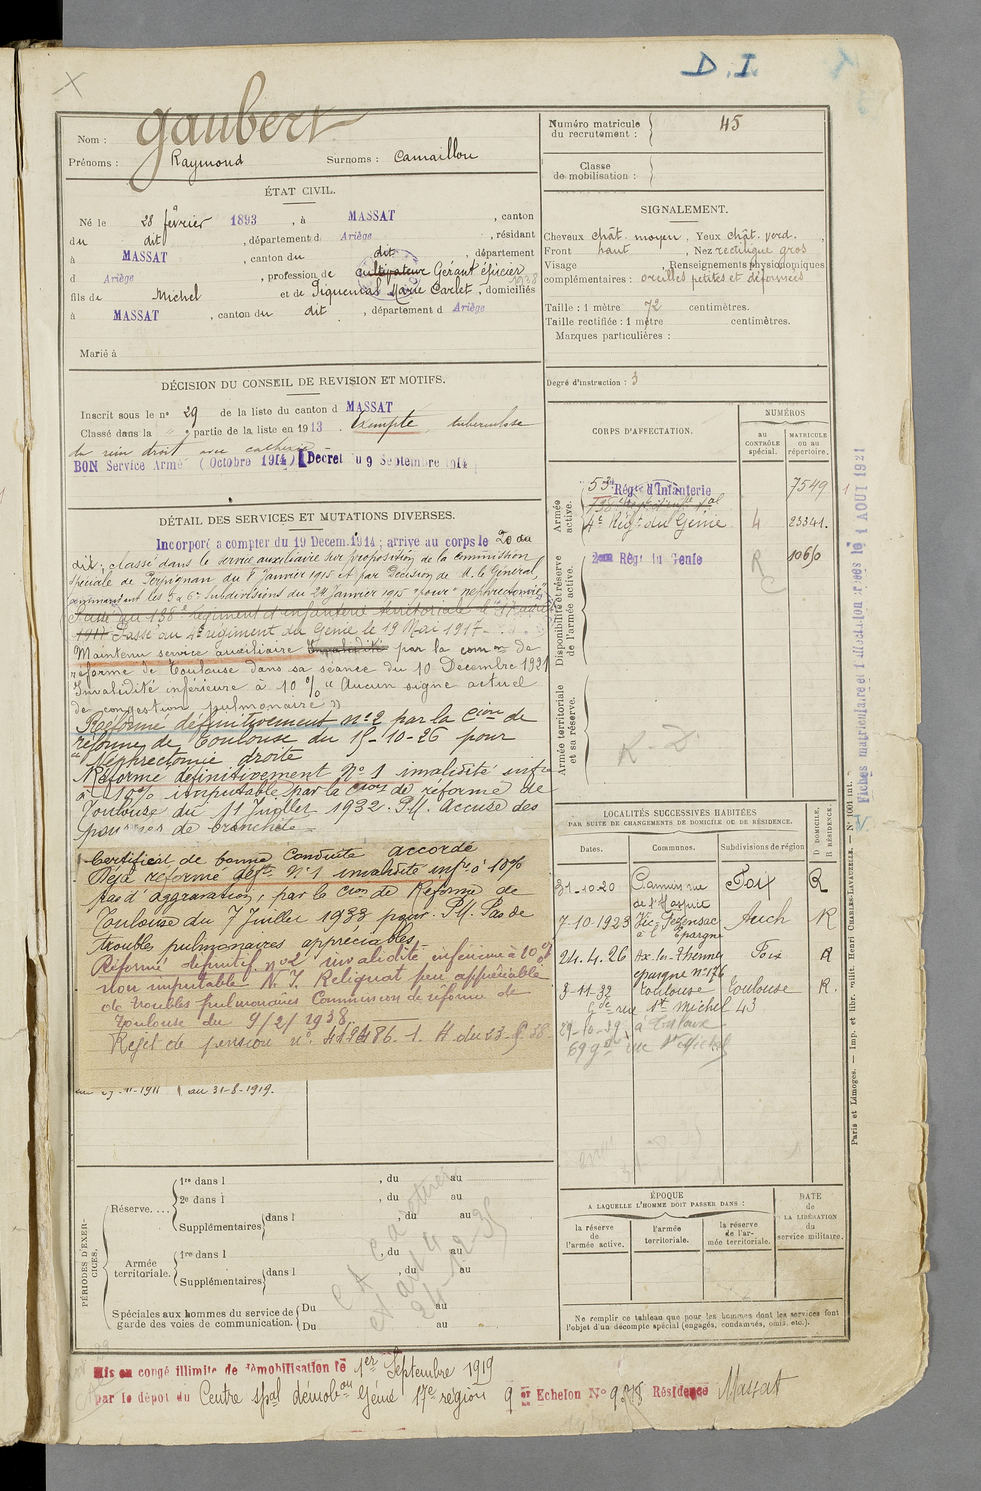 D. I.
Nom : Gaubert
Prénoms : Raymond Surnoms : Camaillou
ÉTAT CIVIL.
Né le 28 février 1893, à MASSAT, canton
du dit, département d Ariège, résidant
à MASSAT, canton du dit, département
d Ariège, profession de cultivateur Gérant épicier
1938
fils de Michel et de Piquemal Marie Carlet, domiciliés
à MASSAT, canton du dit, département d Ariège
Marié à
DÉCISION DU CONSEIL DE REVISION ET MOTIFS.
Inscrit sous le n° 29 de la liste du canton d MASSAT
Classé dans la " partie de la liste en 1913. Exempté, tuberculose
du rein droit avec
BON Service Armé (Octobre 1914) Décret du 9 Septembre 1914
DÉTAIL DES SERVICES ET MUTATIONS DIVERSES.
Incorporé à compter du 19 Décem. 1914; arrivé au corps le 20 du
dit; classé dans le service auxiliaire sur proposition de la commission
spéciale de Perpignan, du 8 Janvier 1915 et par Décision de M. le Général,
commandant les 5 et 6e Subdivisions du 24 Janvier 1915 "pour" néphrectomie"
Passé au 138e régiment d'infanterie territoriale le
1917 Passé au 4e régiment du Génie le 19 Mai 1917
Maintenu service auxiliaire Invalidité par la com on de
réforme de Toulouse dans sa séance du 10 Décembre 1921
Invalidité inférieure à 10 % "Aucun signe actuel
de congestion pulmonaire"
Réformé définitivement n° 2 par la Cion de
réforme de Toulouse du 15-10-26 pour
"Néphrectomie droite
Réformé définitivement N° 1 invalidité infre
à 10% imputable par la Cion de réforme de
Toulouse du 11 Juillet 1932. Pl. Accuse des
poussées de bronchite =
Certificat de bonne conduite accordé
Déjà réformé déft. N° 1 invalidité infre à 10%
pas d'aggravation, par la Cion de Réforme de
Toulouse du 7 Juillet 1933 pour Pl. Pas de
troubles pulmonaires appréciables.-
Réformé définitif n° 2 invalidité inférieure à 10 %
non imputable N. I. Reliquat peu appréciable
de troubles pulmonaires Commission de réforme de
Toulouse du 9/2/1938.
Rejet de pension n° 1. H. du 23-8-38-
au 31-8-1919.
PÉRIODES D'EXERCICES.
Réserve....
1re dans l , du au
2e dans l , du au
Supplémentaires dans l , du au
Armée territoriale.
1re dans l , du au
Supplémentaires dans l , du au
Spéciales aux hommes du service de garde des voies de communication.
Du au
Du au
Mis en congé illimité de démobilisation le 1er Septembre 1919
par le dépôt du Centre spal démobon Génie 17e région 9 er Echelon N° 9318 Résidence Massat
Numéro matricule
du recrutement : 45
Classe
de mobilisation :
SIGNALEMENT.
Cheveux chât. moyen, Yeux chât. verd.,
Front haut, Nez rectiligne gros
Visage , Renseignements physionomiques
complémentaires : oreilles petites et déformées
Taille : 1 mètre 72 centimètres.
Taille rectifiée : 1 mètre centimètres.
Marques particulières :
Degré d'instruction : 3
CORPS D'AFFECTATION.
NUMÉROS
au
CONTRÔLE
spécial.
MATRICULE
ou au
répertoire.
Armée
active.
53e Régt d'Infanterie 7549
138e Régt d'infrie tal
4e Régt du Génie 4 23341.
Disponibilité et réserve
de l'armée active.
2eme Régt du Génie R C 10650
Armée territoriale
et sa réserve.
R - D
LOCALITÉS SUCCESSIVES HABITÉES
PAR SUITE DE CHANGEMENTS DE DOMICILE OU DE RÉSIDENCE.
Dates. Communes. Subdivisions de région
D DOMICILE.
R RÉSIDENCE.
31-10-20 Pamiers rue Foix R
de l'Hospice
7-10-1923 Vic-Fezensac Auch R
à l'Epargne
24.4.26 Ax-les-Thermes Foix R
épargne n° 176
3-11-32 Toulouse Toulouse R.
Gde rue St Michel 43
29-10-39 à Toulouse
69 gde rue St Michel
ÉPOQUE
A LAQUELLE L'HOMME DOIT PASSER DANS :
la réserve
de
l'armée active.
l'armée
territoriale.
la réserve
de l'ar-
mée territoriale.
DATE
de
LA LIBÉRATION
du
service militaire.
Ne remplir ce tableau que pour les hommes dont les services font
l'objet d'un décompte spécial (engagés, condamnés, omis, etc.).
Fiches matriculaire et d'affectation créées le 1 AOUT 1921
Paris et Limoges. — Imp. et libr. milit. Henri CHARLES-LAVAUZELLE. — N° 1001 int.